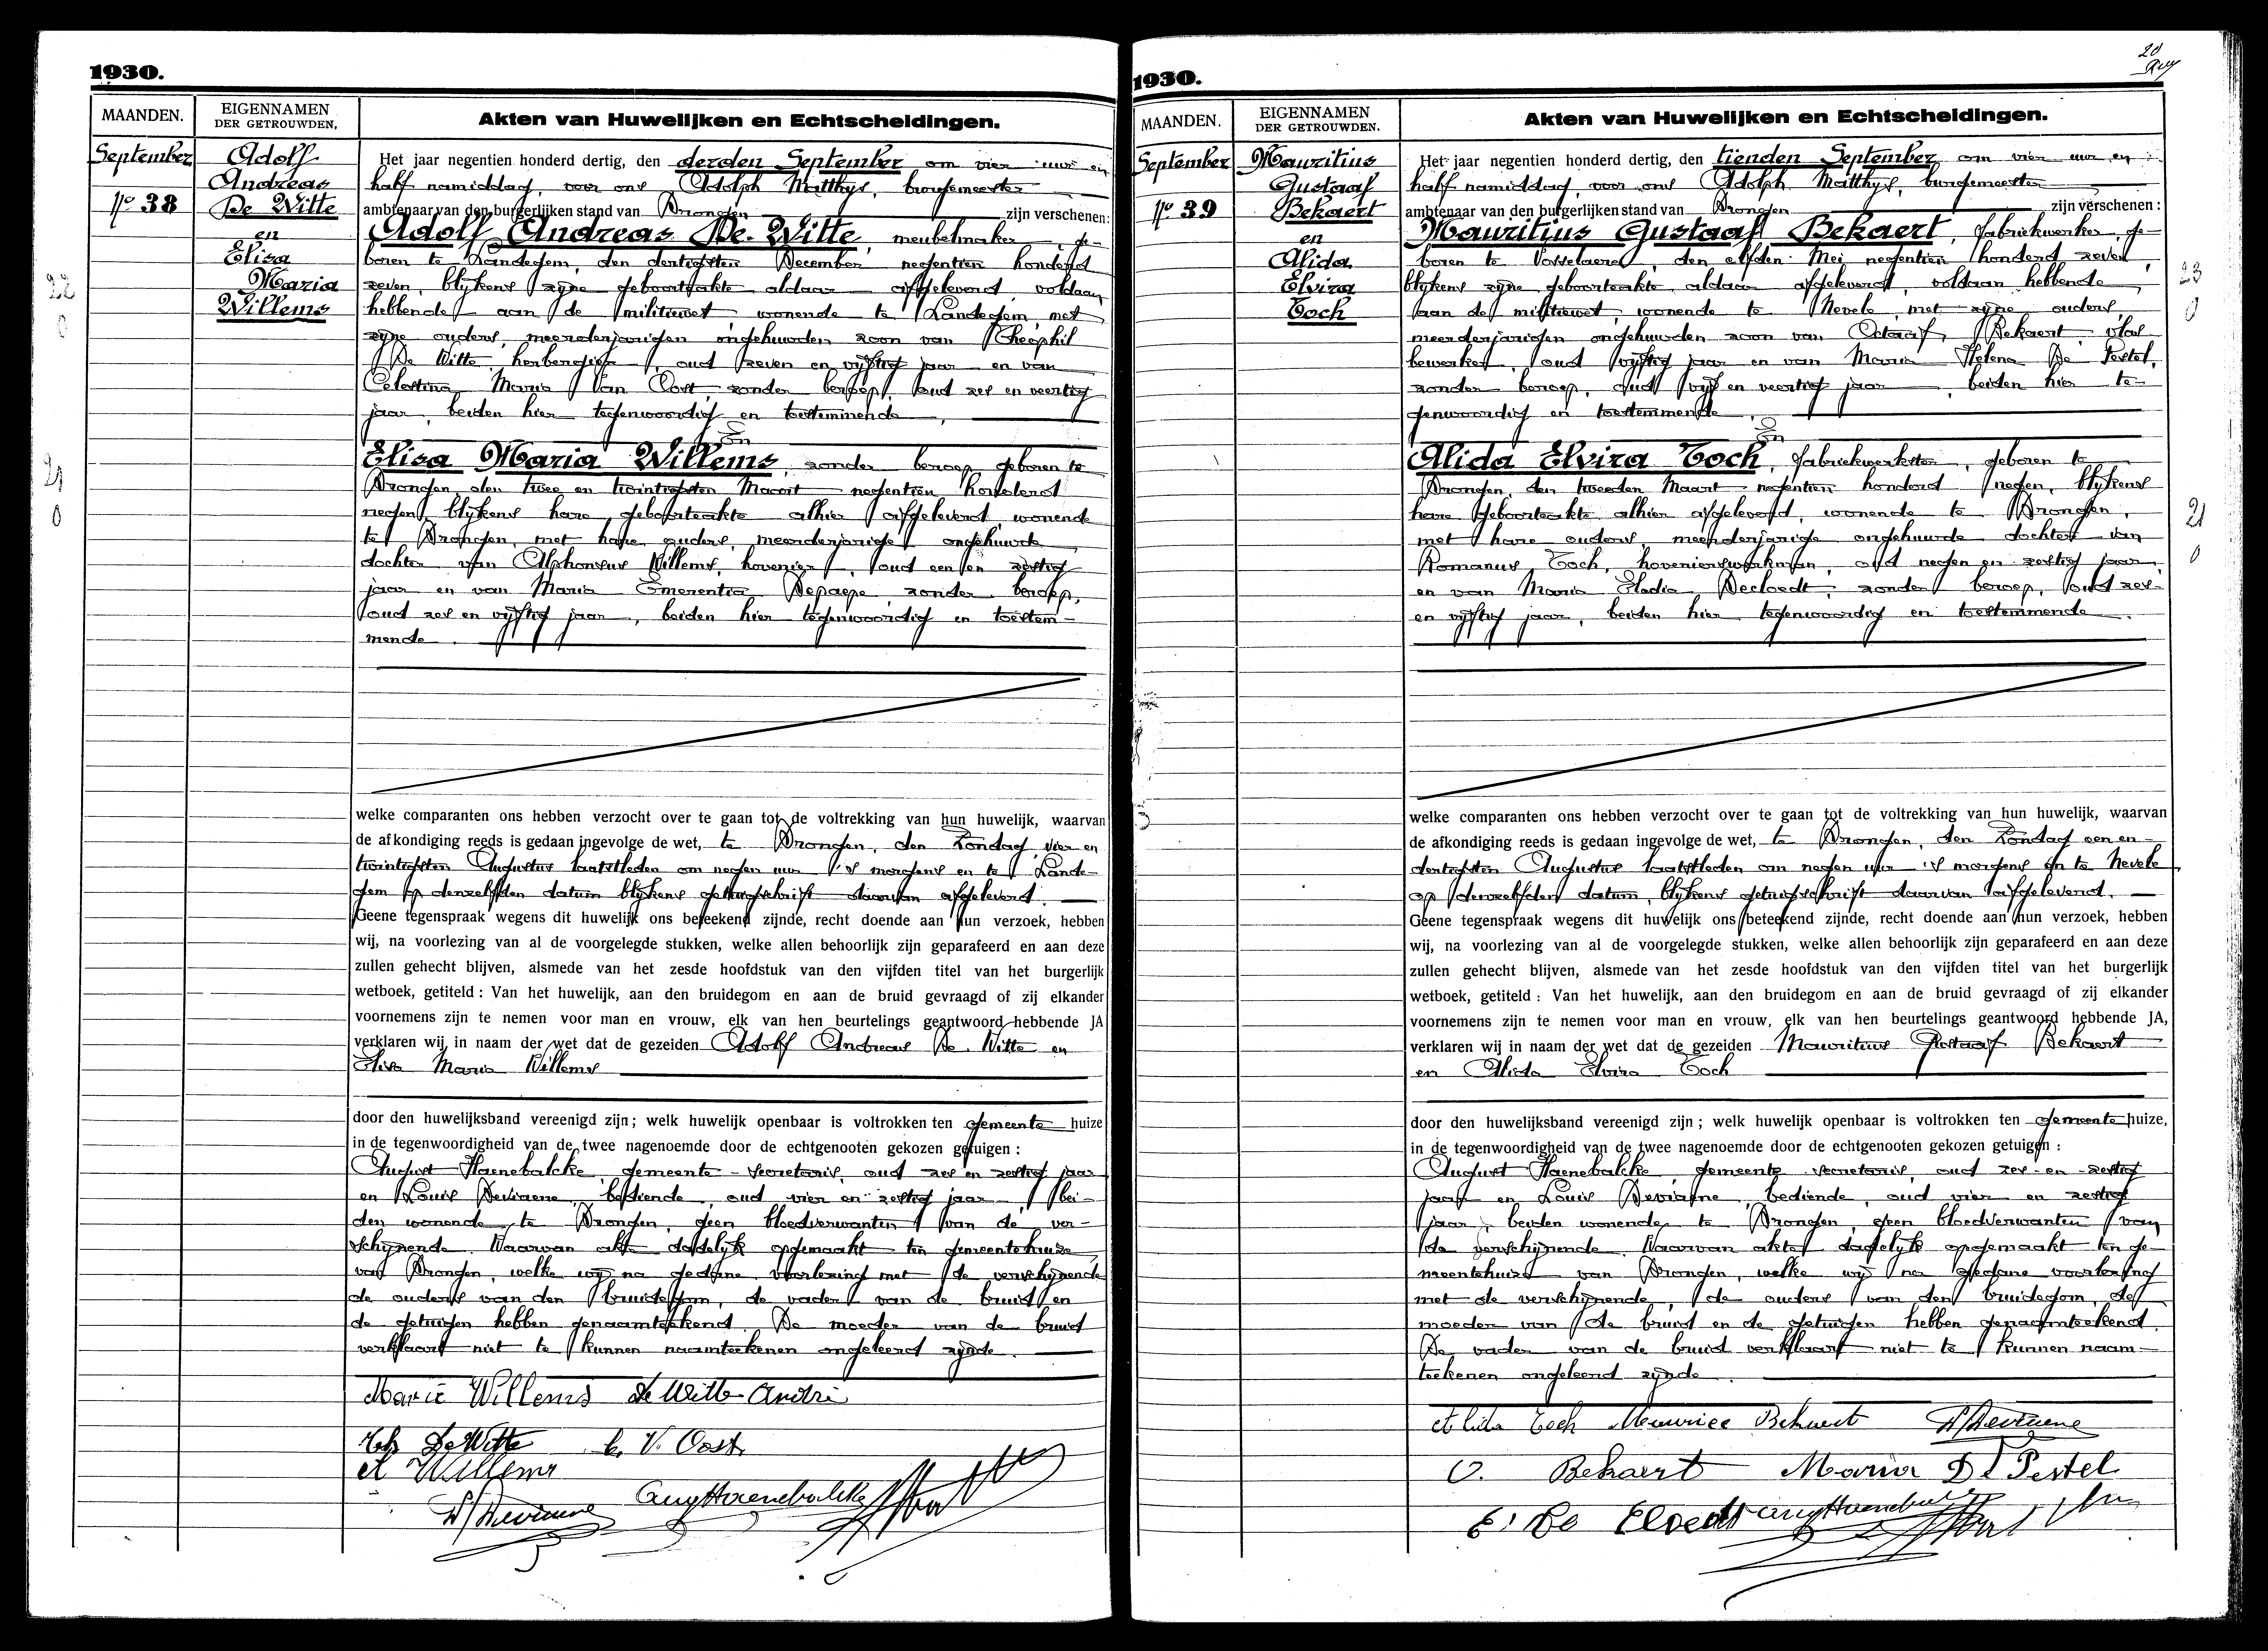 1930.
MAANDEN.
EIGENNAMEN
DER GETROUWDEN,
Akten van Huwelijken en Echtscheidingen.
September
No 38
Adolf
Andreas
De Witte
en
Elisa
Maria
Willems
22
0
21
0
Het jaar negentien honderd dertig, den derden September om vier uur en
half namiddag, voor ons Adolph Matthys, burgemeester
ambtenaar van den burgerlijken stand van Drongen zijn verschenen:
Adolf Andreas De Witte, meubelmaker, ge-
boren te Landegem, den dertigsten December negentien honderd
zeven, blijkens zijne geboorteakte aldaar afgeleverd, voldaan
hebbende aan de militiewet wonende te Landegem, met
zijne ouders, meerderjarigen ongehuwden zoon van Theophil
De Witte, herbergier, oud zeven en vijftig jaar en van
Celestina Maria Van Oost, zonder beroep, oud zes en veertig
jaar, beiden hier tegenwoordig en toestemmende,
En
Elisa Maria Willems, zonder beroep, geboren te
Drongen, den twee en twintigsten Maart negentien honderd
negen, blijkens hare geboorteakte alhier afgeleverd, wonende
te Drongen, met hare ouders, meerderjarige ongehuwde
dochter van Alphonsus Willems, hovenier, oud een en zestig
jaar en van Maria Emerentia Depaepe, zonder beroep,
oud zes en vijftig jaar, beiden hier tegenwoordig en toestem-
mende.
welke comparanten ons hebben verzocht over te gaan tot de voltrekking van hun huwelijk, waarvan
de afkondiging reeds is gedaan ingevolge de wet, te Drongen, den Zondag vier en
twintigsten Augustus laatstleden om negen uur 's morgens en te Lande-
gem op denzelfden datum blijkens getuigschrift daarvan afgeleverd.
Geene tegenspraak wegens dit huwelijk ons beteekend zijnde, recht doende aan hun verzoek, hebben
wij, na voorlezing van al de voorgelegde stukken, welke allen behoorlijk zijn geparafeerd en aan deze
zullen gehecht blijven, alsmede van het zesde hoofdstuk van den vijfden titel van het burgerlijk
wetboek, getiteld : Van het huwelijk, aan den bruidegom en aan de bruid gevraagd of zij elkander
voornemens zijn te nemen voor man en vrouw, elk van hen beurtelings geantwoord hebbende JA
verklaren wij in naam der wet dat de gezeiden Adolf Andreas De Witte en
Elisa Maria Willems
door den huwelijksband vereenigd zijn ; welk huwelijk openbaar is voltrokken ten gemeente huize
in de tegenwoordigheid van de twee nagenoemde door de echtgenooten gekozen getuigen :
August Haenebalcke, gemeente-secretaris, oud zes en zestig jaar
en Louis Deviaene, bediende, oud vier en zestig jaar, bei-
den wonende te Drongen, geen bloedverwanten van de ver-
schijnende. Waarvan akte dadelijk opgemaakt ten gemeentehuize
van Drongen, welke wij na gedane voorlezing met de verschijnende
de ouders van den bruidegom, de vader van de bruid en
de getuigen hebben genaamteekend. De moeder van de bruid
verklaart niet te kunnen naamteekenen ongeleerd zijnde.
Marie Willems De Witte André
Th De Witte C. V. Oost
A Willems
Aug Haenebalcke
L Deviaene
1930.
20
MAANDEN.
EIGENNAMEN
DER GETROUWDEN.
Akten van Huwelijken en Echtscheidingen.
September
No 39
Mauritius
Gustaaf
Bekaert
en
Alida
Elvira
Toch
23
0
21
0
Het jaar negentien honderd dertig, den tienden September om vier uur en
half namiddag, voor ons Adolph Matthys, burgemeester
ambtenaar van den burgerlijken stand van Drongen zijn verschenen :
Mauritius Gustaaf Bekaert, fabriekwerker, ge-
boren te Vosselaere, den elfden Mei negentien honderd zeven,
blijkens zijne geboorteakte aldaar afgeleverd, voldaan hebbende
aan de militiewet, wonende te Nevele, met zijne ouders,
meerderjarigen ongehuwden zoon van Octaaf Bekaert, vlas
bewerker, oud vijftig jaar en van Maria Helena De Pestel,
zonder beroep, oud vijf en veertig jaar, beiden hier te-
genwoordig en toestemmende,
En
Alida Elvira Toch, fabriekwerkster, geboren te
Drongen, den tweeden Maart negentien honderd negen, blijkens
hare geboorteakte alhier afgeleverd, wonende te Drongen,
met hare ouders, meerderjarige ongehuwde dochter van
Romanus Toch, hovenierswerkman, oud negen en zestig jaar,
en van Maria Eladia Decloedt, zonder beroep, oud zes-
en vijftig jaar, beiden hier tegenwoordig en toestemmende.
welke comparanten ons hebben verzocht over te gaan tot de voltrekking van hun huwelijk, waarvan
de afkondiging reeds is gedaan ingevolge de wet, te Drongen, den Zondag een en-
dertigsten Augustus laatstleden om negen uur 's morgens en te Nevele
op denzelfden datum, blijkens getuigschrift daarvan afgeleverd.
Geene tegenspraak wegens dit huwelijk ons beteekend zijnde, recht doende aan hun verzoek, hebben
wij, na voorlezing van al de voorgelegde stukken, welke allen behoorlijk zijn geparafeerd en aan deze
zullen gehecht blijven, alsmede van het zesde hoofdstuk van den vijfden titel van het burgerlijk
wetboek, getiteld : Van het huwelijk, aan den bruidegom en aan de bruid gevraagd of zij elkander
voornemens zijn te nemen voor man en vrouw, elk van hen beurtelings geantwoord hebbende JA,
verklaren wij in naam der wet dat de gezeiden Mauritius Gustaaf Bekaert
en Alida Elvira Toch
door den huwelijksband vereenigd zijn ; welk huwelijk openbaar is voltrokken ten gemeente huize,
in de tegenwoordigheid van de twee nagenoemde door de echtgenooten gekozen getuigen :
August Haenebalcke, gemeente secretaris, oud zes-en-zestig
jaar en Louis Deviaene, bediende, oud vier en zestig
jaar, beiden wonende te Drongen, geen bloedverwanten van
de verschijnende. Waarvan akte dadelijk opgemaakt ten ge-
meentehuize van Drongen, welke wij na gedane voorlezing
met de verschijnende, de ouders van den bruidegom, de
moeder van de bruid en de getuigen hebben genaamteekend.
De vader van de bruid verklaart niet te kunnen naam-
teekenen ongeleerd zijnde.
Alida Toch Maurice Bekaert L Deviaene
O. Bekaert Maria De Pestel
E. De Cloedt Aug Haenebalcke